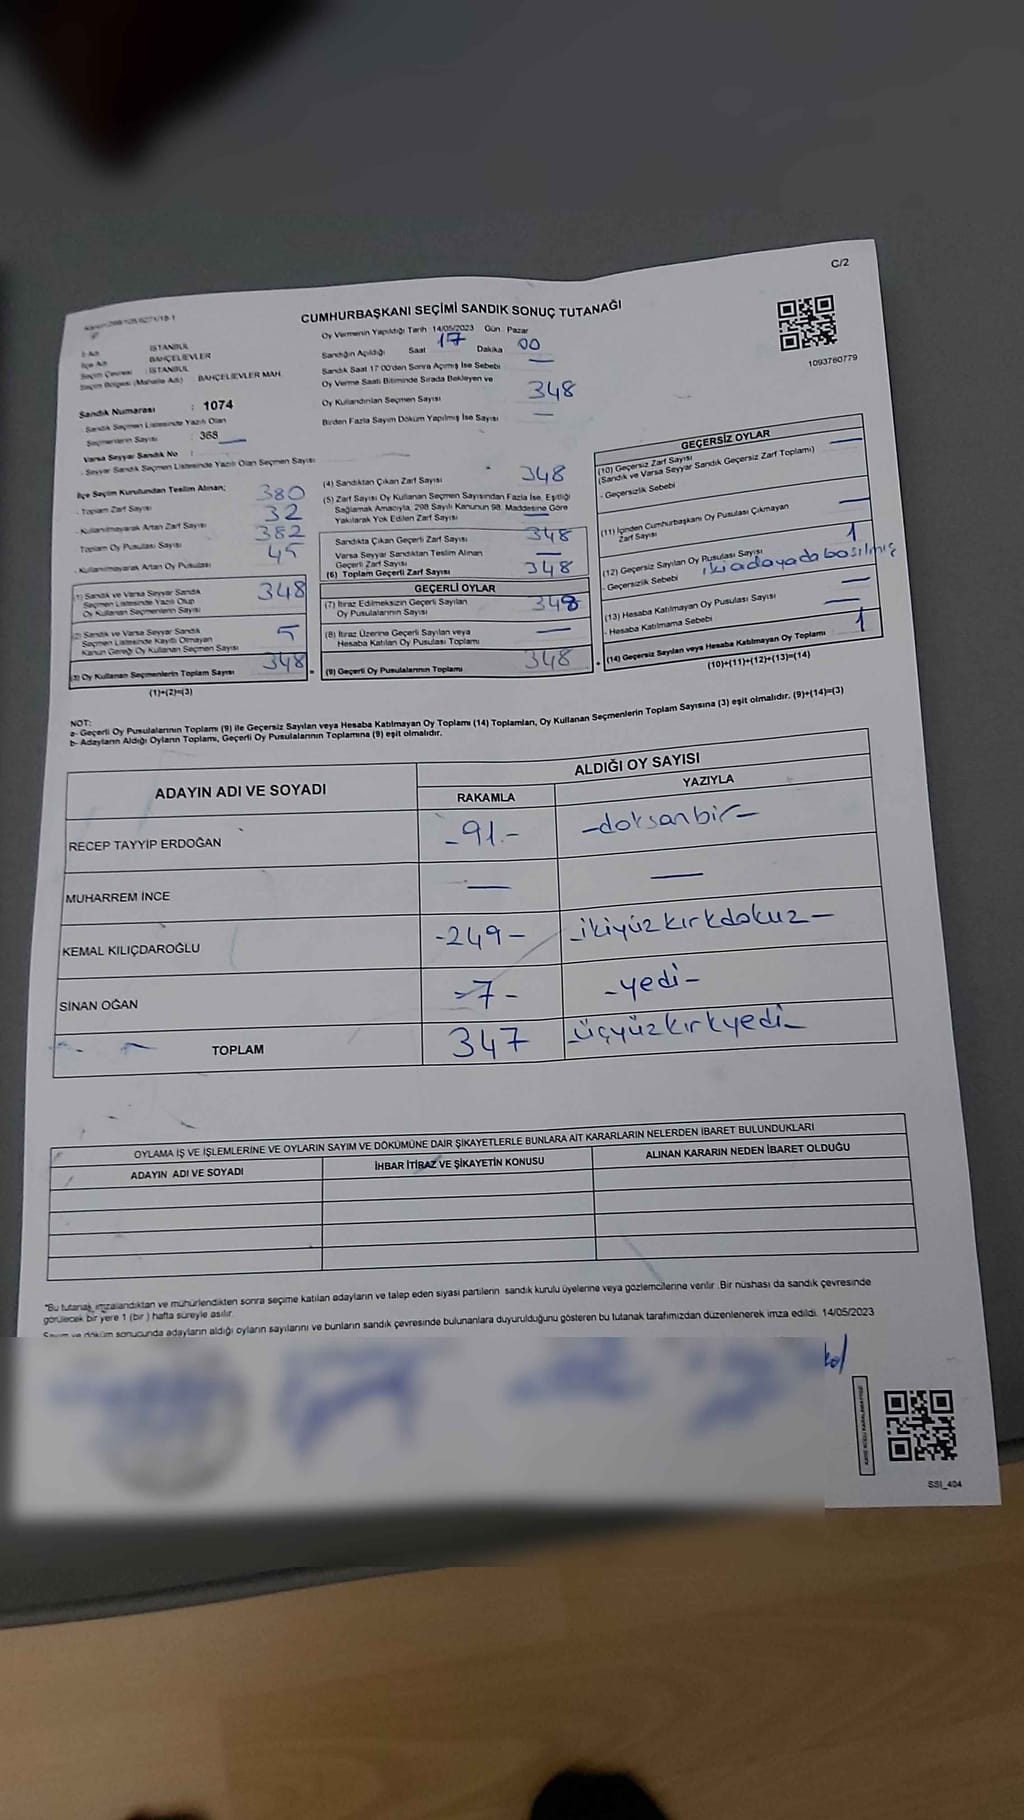 C/2
CUMHURBAŞKANI SEÇİMİ SANDIK SONUÇ TUTANAĞI
1093760779
İl Adı : İSTANBUL
İlçe Adı : BAHÇELİEVLER
Seçim Çevresi : İSTANBUL
Seçim Bölgesi (Mahalle Adı) : BAHÇELİEVLER MAH.
Sandık Numarası : 1074
Sandık Seçmen Listesinde Yazılı Olan
Seçmenlerin Sayısı : 368
Varsa Seyyar Sandık No :
- Seyyar Sandık Seçmen Listesinde Yazılı Olan Seçmen Sayısı
Oy Vermenin Yapıldığı Tarih 14/05/2023 Gün Pazar
Sandığın Açıldığı Saat 17 Dakika 00
Sandık Saat 17:00'den Sonra Açılmış İse Sebebi —
Oy Verme Saati Bitiminde Sırada Bekleyen ve
Oy Kullandırılan Seçmen Sayısı 348
Birden Fazla Sayım Döküm Yapılmış İse Sayısı —
İlçe Seçim Kurulundan Teslim Alınan;
- Toplam Zarf Sayısı 380
- Kullanılmayarak Artan Zarf Sayısı 32
Toplam Oy Pusulası Sayısı 382
- Kullanılmayarak Artan Oy Pusulası 45
(1) Sandık ve Varsa Seyyar Sandık
Seçmen Listesinde Yazılı Olup
Oy Kullanan Seçmenlerin Sayısı 348
(2) Sandık ve Varsa Seyyar Sandık
Seçmen Listesinde Kayıtlı Olmayan
Kanun Gereği Oy Kullanan Seçmen Sayısı 5
(3) Oy Kullanan Seçmenlerin Toplam Sayısı 348 =
(1)+(2)=(3)
(4) Sandıktan Çıkan Zarf Sayısı 348
(5) Zarf Sayısı Oy Kullanan Seçmen Sayısından Fazla İse, Eşitliği
Sağlamak Amacıyla, 298 Sayılı Kanunun 98. Maddesine Göre
Yakılarak Yok Edilen Zarf Sayısı —
Sandıkta Çıkan Geçerli Zarf Sayısı 348
Varsa Seyyar Sandıktan Teslim Alınan
Geçerli Zarf Sayısı —
(6) Toplam Geçerli Zarf Sayısı 348
GEÇERLİ OYLAR
(7) İtiraz Edilmeksizin Geçerli Sayılan
Oy Pusulalarının Sayısı 348
(8) İtiraz Üzerine Geçerli Sayılan veya
Hesaba Katılan Oy Pusulası Toplamı —
(9) Geçerli Oy Pusulalarının Toplamı 348 +
GEÇERSİZ OYLAR
(10) Geçersiz Zarf Sayısı —
(Sandık ve Varsa Seyyar Sandık Geçersiz Zarf Toplamı)
- Geçersizlik Sebebi
(11) İçinden Cumhurbaşkanı Oy Pusulası Çıkmayan
Zarf Sayısı —
(12) Geçersiz Sayılan Oy Pusulası Sayısı 1
- Geçersizlik Sebebi iki adaya da basılmış
(13) Hesaba Katılmayan Oy Pusulası Sayısı —
- Hesaba Katılmama Sebebi —
(14) Geçersiz Sayılan veya Hesaba Katılmayan Oy Toplamı 1
(10)+(11)+(12)+(13)=(14)
NOT:
a- Geçerli Oy Pusulalarının Toplamı (9) ile Geçersiz Sayılan veya Hesaba Katılmayan Oy Toplamı (14) Toplamları, Oy Kullanan Seçmenlerin Toplam Sayısına (3) eşit olmalıdır. (9)+(14)=(3)
b- Adayların Aldığı Oyların Toplamı, Geçerli Oy Pusulalarının Toplamına (9) eşit olmalıdır.
ADAYIN ADI VE SOYADI
ALDIĞI OY SAYISI
RAKAMLA YAZIYLA
RECEP TAYYİP ERDOĞAN -91.- -doksanbir-
MUHARREM İNCE — —
KEMAL KILIÇDAROĞLU -249- -ikiyüzkırkdokuz-
SİNAN OĞAN -7- -yedi-
TOPLAM 347 -üçyüzkırkyedi-
OYLAMA İŞ VE İŞLEMLERİNE VE OYLARIN SAYIM VE DÖKÜMÜNE DAİR ŞİKAYETLERLE BUNLARA AİT KARARLARIN NELERDEN İBARET BULUNDUKLARI
ADAYIN ADI VE SOYADI İHBAR İTİRAZ VE ŞİKAYETİN KONUSU ALINAN KARARIN NEDEN İBARET OLDUĞU
*Bu tutanak imzalandıktan ve mühürlendikten sonra seçime katılan adayların ve talep eden siyasi partilerin sandık kurulu üyelerine veya gözlemcilerine verilir. Bir nüshası da sandık çevresinde
görülecek bir yere 1 (bir) hafta süreyle asılır.
Sayım ve döküm sonucunda adayların aldığı oyların sayılarını ve bunların sandık çevresinde bulunanlara duyurulduğunu gösteren bu tutanak tarafımızdan düzenlenerek imza edildi. 14/05/2023
SSI_404